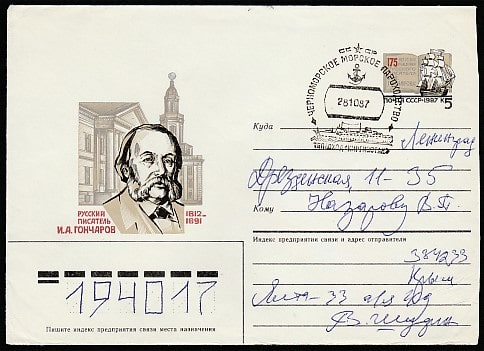 175
ПОЧТА СССР•1987 К 5
ЧЕРНОМОРСКОЕ МОРСКОЕ ПАРОХОДСТВО
281087
Куда Ленинград
Дрезденская, 11-35
Кому Назарову В.П.
РУССКИЙ
ПИСАТЕЛЬ
И.А.ГОНЧАРОВ
1812–
1891
Индекс предприятия связи и адрес отправителя
334233
Крым
Ялта-33
194017
Пишите индекс предприятия связи места назначения